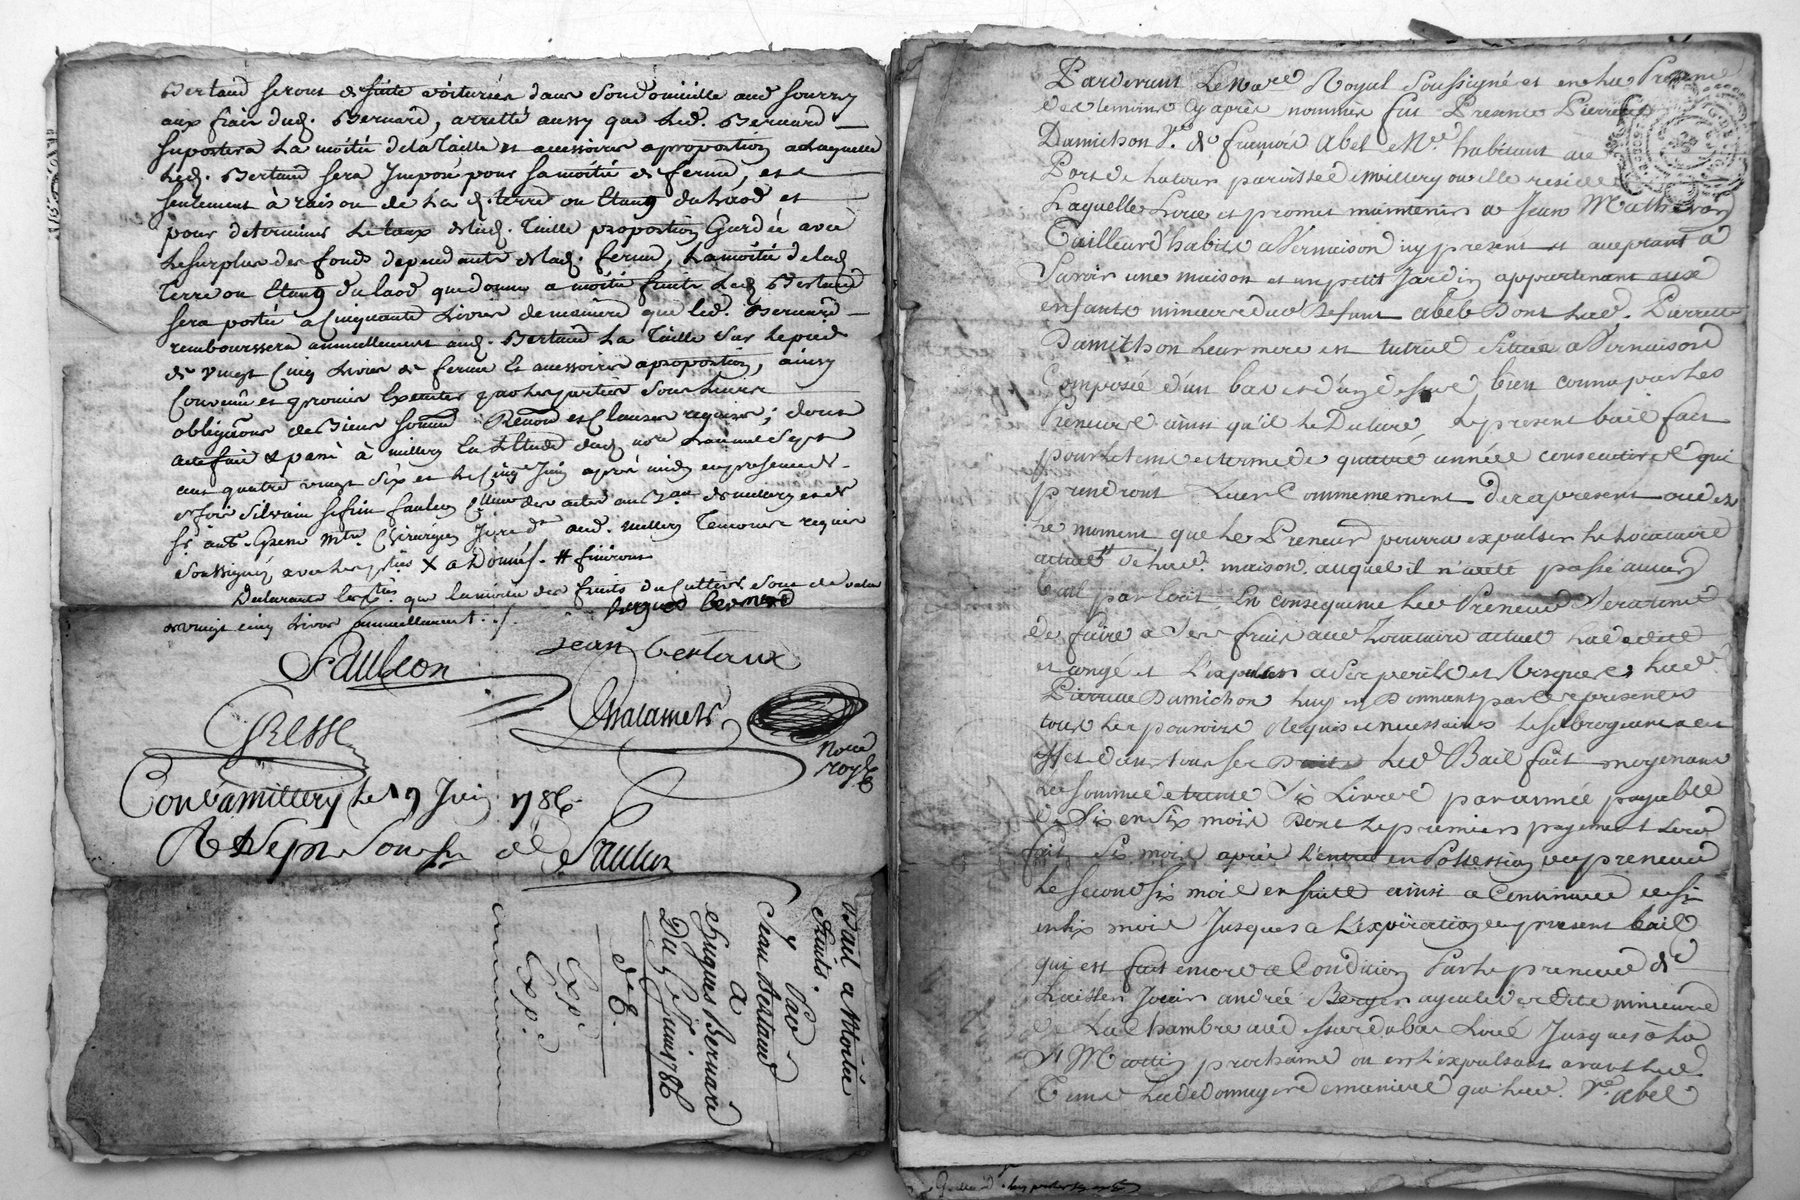 Bertaud seront de suite voiturés dans son domicille aud Sourzy
aux frais dud. Bernard, arretté aussy que led. Bernard
suportera la moitié de la Taille et accessoires a proportion a laquelle
led. Bertaud sera Imposé pour sa moitié de ferme, et
seulement à raison de la d. terre ou Etang du Laod et
pour determiner le taux de lad. Taille proportion Gardée avec
le surplus des fonds dependants de lad. ferme, la moitié de lad.
Terre ou Etang du Laod que donne a moitié fruits led. Bertaud
sera portée a Cinquante Livres de maniere que led. Bernard
remboursera annuellement aud. Bertaud la Taille sur le pied
de vingt Cinq Livres de ferme et accessoires a proportion, ainsy
Convenu et promis Executer par les parties sous leurs
obligaons de Biens soumis Renon et Clauses requises; dont
acte fait & passé à millery En Etude dud. nore L'an mil Sept
cent quatre vingt six et le Cinq Juin après midy en presence de
sr Silvain faulcon des actes au Bau de millery et de
sr ant. Gresse mtre Chirurgien Juré aud. millery Temoins requis
soussignés avec les pties X a Donnés. # finiront
Declarants les pties que la moitié des fruits du Cuttiers sont de valeur
de vingt cinq Livres annuellement ./.
hugues bernard
Jean bertaux
Faulcon
Chalamel
Gresse
Noere
Royal
Con a millery le 9 Juin 1786
R Sept sous six d.
Faulcon
Bail a Moitié
fruits.
Par
Jean Bertaud
a
Hugues Bernard
Du 5e Juin 1786
de E.
Exp.e
Exp.e
Pardevant Le Nore Royal Soussigné et en la Presence
des temoins Cy après nommés fut Presente Pierrette
Damichon Ve de françois Abel Nre. habitant au
Port de la tour paroisse de millery ou elle reside
Laquelle Loue et promet maintenir a Jean Matheron
Tailleur d'habits a Vernaison icy present et acceptant à
Savoir une maison et un petit Jardin appartenant aux
enfants mineurs dud Defunt abel Dont lad. Pierrette
Damichon leur mere est tutrice Située a Vernaison
Composée d'un bas et d'un dessus, bien connu par les
Preneur ainsi qu'il le Declare, le present bail fait
pour le tems et terme de quattre années consecutives qui
prendront Leur Commencement des a present ou dez
le moment que le Preneur pourra expulser le Locataire
actuel de lad. maison auquel il n'a été passé aucun
bail par Ecrit En consequence led. Preneur sera tenu
de faire a ses frais aud Locataire actuel
et congé et L'expulser a Ses perils et risques, lad.
Pierrette Damichon luy en Donnant par les presentes
tous les pouvoirs Requis et necessaires le subrogeant a cet
effet dans tous ses Droits Led Bail fait moyenant
La somme de trente Six Livres par année payable
de Six en Six mois Dont le premier payement sera
fait Six mois après L'entrée en Possession du preneur
Le second six mois en suitte ainsi a Continuer de six
en six mois Jusques a L'expiration du present bail
qui est fait encore a Condition Par le preneur de
Laisser Jouir andrée Berger ayeule desdits mineurs
de La Chambre au dessus du bas Loué Jusques a la
St Martin prochaine ou en l'expulsant avant led.
Tems La dedomager de maniere que lad. Ve. abel